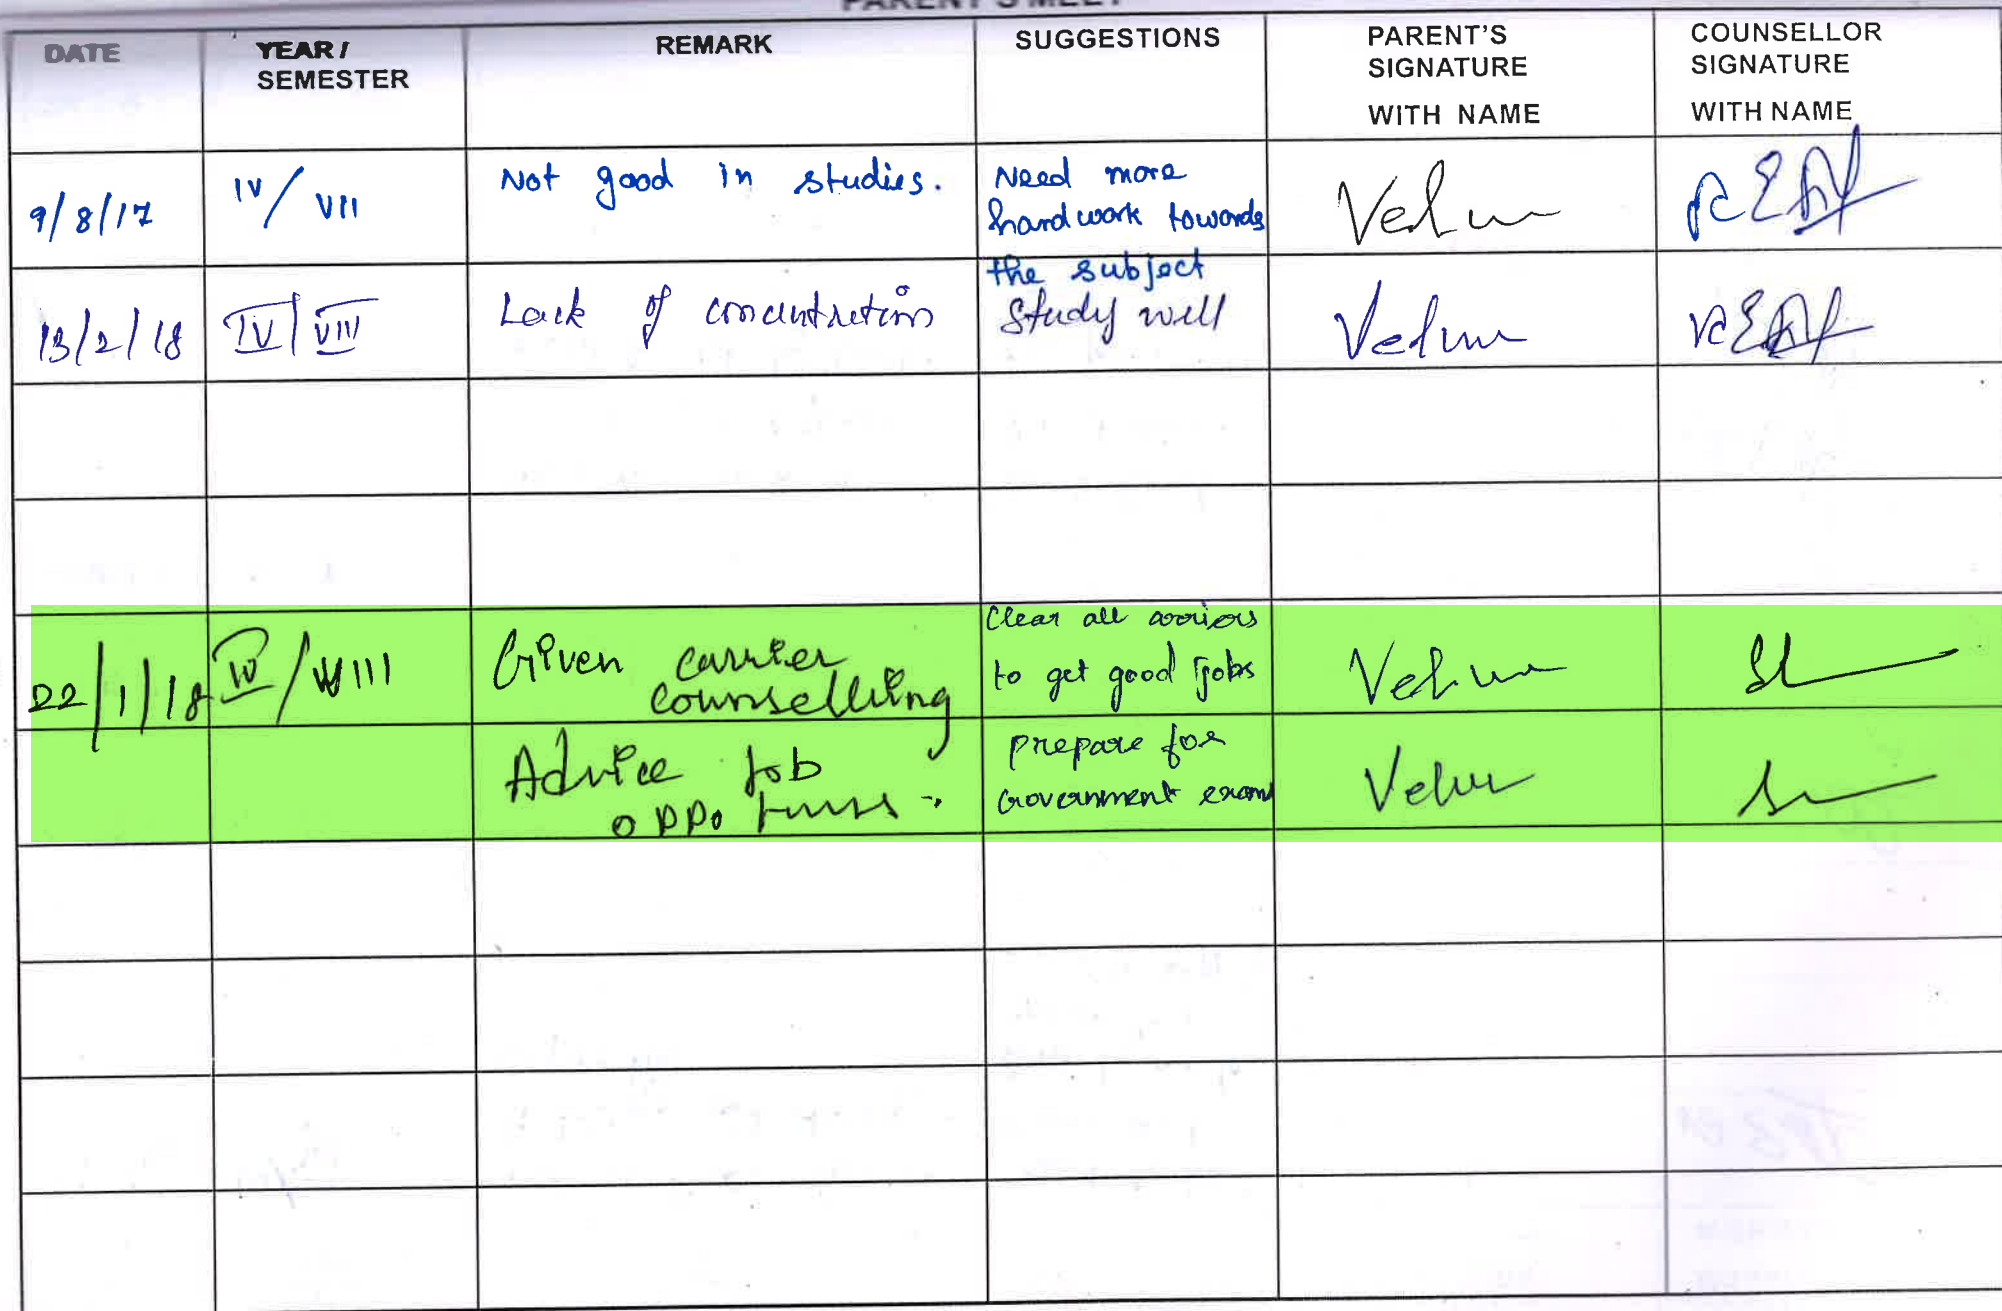 PARENT'S MEET
DATE
YEAR / SEMESTER
REMARK
SUGGESTIONS
PARENT'S SIGNATURE WITH NAME
COUNSELLOR SIGNATURE WITH NAME
9/8/17
IV/ VII
Not good in studies.
Need more
hardwork towards
the subject
13/2/18
IV/VIII
Lack of concentretion
Study well
22/1/18
IV/VIII
Given carrier
counselling
Clear all arriers
to get good jobs
Advice job
prepare for
Government exam